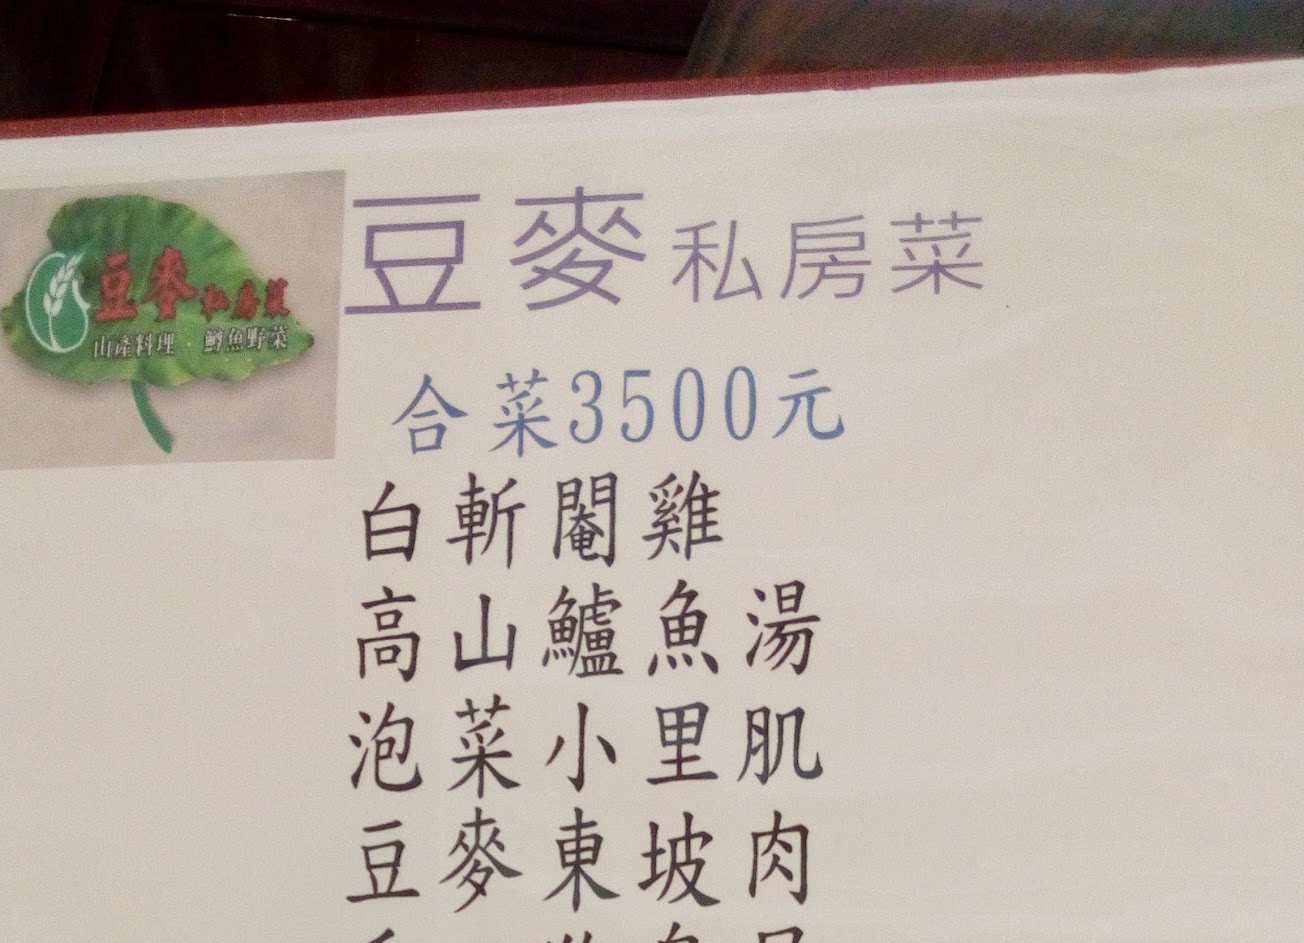 豆麥私房菜
山產料理．鱒魚野菜
豆麥私房菜
合菜3500元
白斬閹雞
高山鱸魚湯
泡菜小里肌
豆麥東坡肉